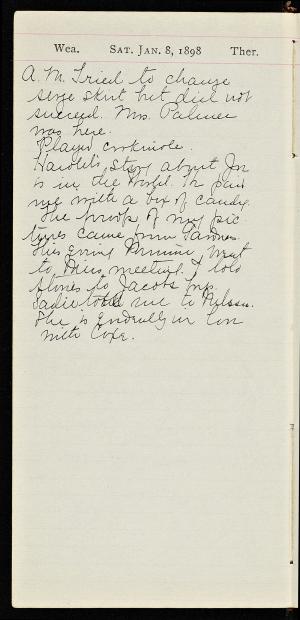 Wea. SAT. JAN. 8, 1898 Ther.
A. M. Tried to change
serge skirt but did not
succeed. Mrs. Palmer
was here.
Played crokinole.
Harold's story about Jr
is in the World. He paid
me with a box of candy.
The proofs of my pic
tures came from
This evening went
to Miss. meeting. I told
stories to Jacobs
Sadie told me to
She is generally in love
with Coxe.